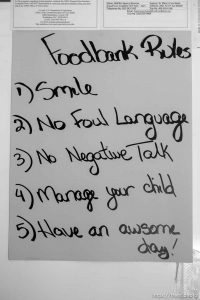 Foodbank Rules
1) Smile
2) No Foul Language
3) No Negative Talk
4) Manage your child
5) Have an awsome
day!